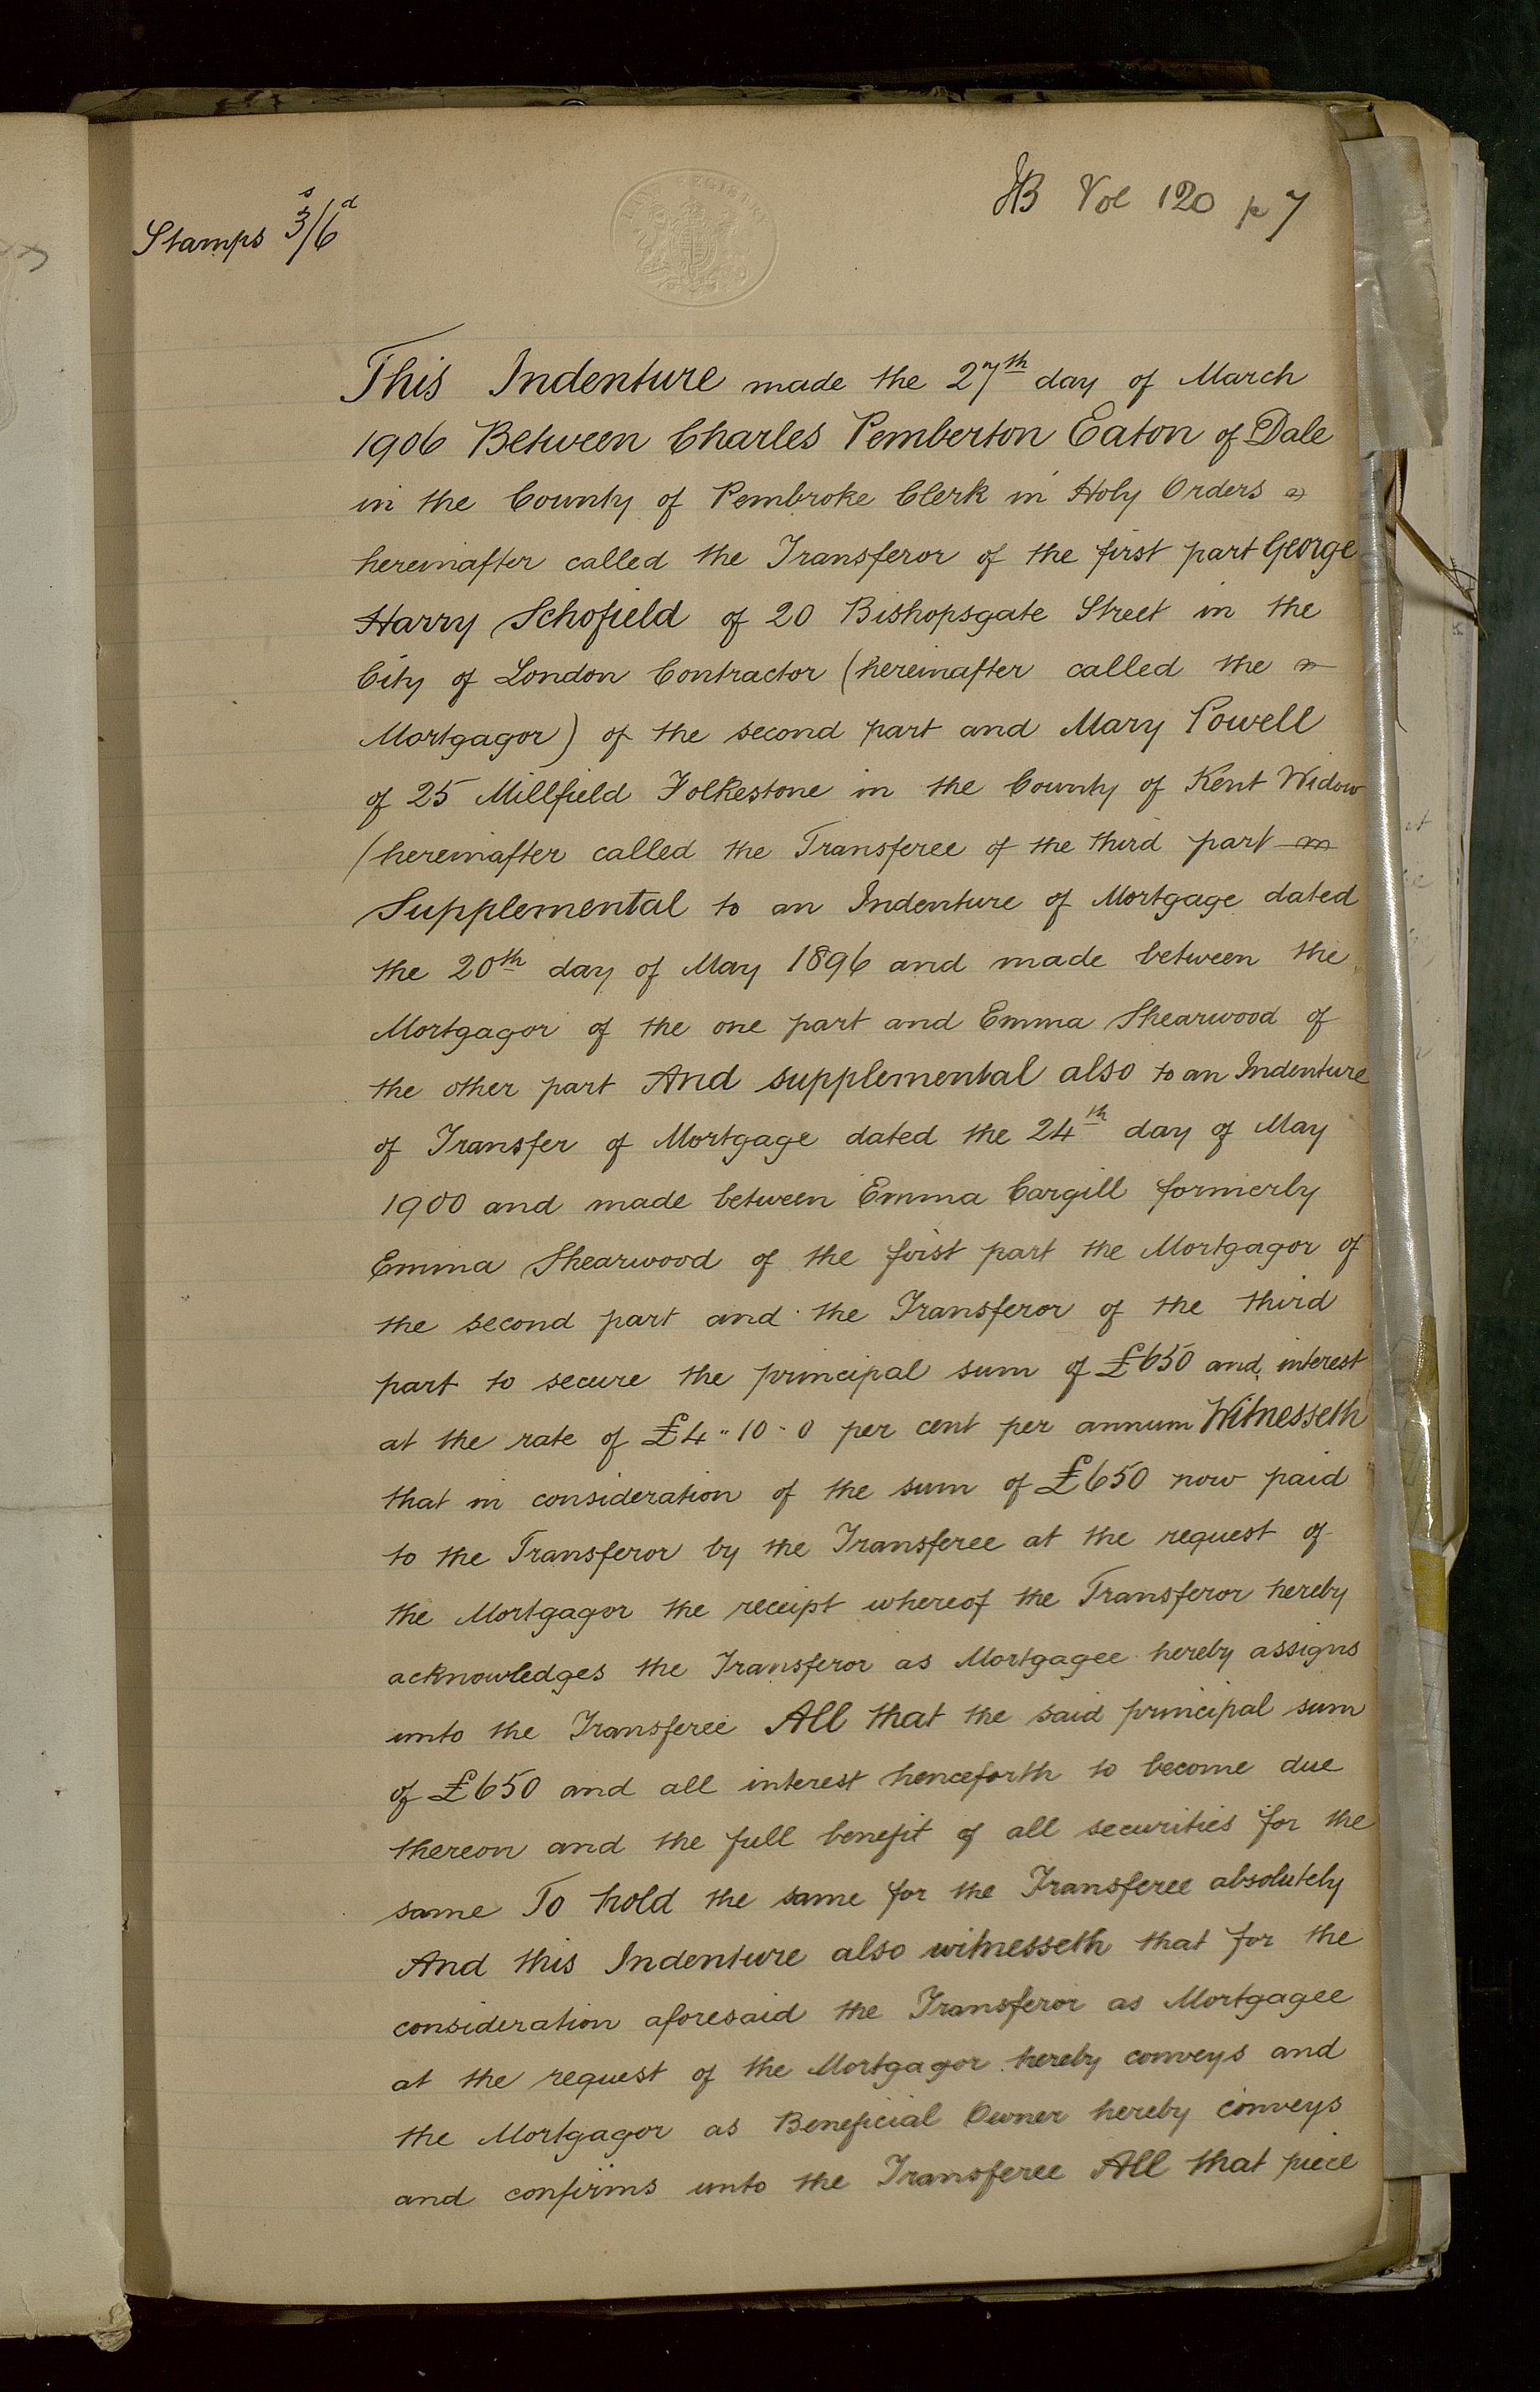 HB Vol 120 p 7
Stamps 3s/6d
This Indenture made the 27th day of March
1906 Between Charles Pemberton Eaton of Dale
in the County of Pembroke Clerk in Holy Orders
hereinafter called the Transferor of the first part George
Harry Schofield of 20 Bishopsgate Street in the
City of London Contractor (hereinafter called the
Mortgagor) of the second part and Mary Powell
of 25 Millfield Folkestone in the County of Kent Widow
(hereinafter called the Transferee of the third part
Supplemental to an Indenture of Mortgage dated
the 20th day of May 1896 and made between the
Mortgagor of the one part and Emma Shearwood of
the other part And supplemental also to an Indenture
of Transfer of Mortgage dated the 24th day of May
1900 and made between Emma Cargill formerly
Emma Shearwood of the first part the Mortgagor of
the second part and the Transferor of the third
part to secure the principal sum of £650 and interest
at the rate of £4 " 10 - 0 per cent per annum Witnesseth
that in consideration of the sum of £650 now paid
to the Transferor by the Transferee at the request of
the Mortgagor the receipt whereof the Transferor hereby
acknowledges the Transferor as Mortgagee hereby assigns
unto the Transferee All that the said principal sum
of £650 and all interest henceforth to become due
thereon and the full benefit of all securities for the
same To hold the same for the Transferee absolutely
And this Indenture also witnesseth that for the
consideration aforesaid the Transferor as Mortgagee
at the request of the Mortgagor hereby conveys and
the Mortgagor as Beneficial Owner hereby conveys
and confirms unto the Transferee All that piece